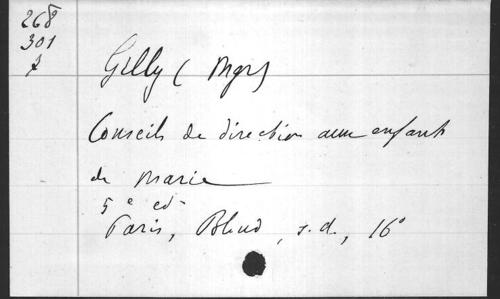 268
301
Gilly (Mgr)
Conseils de direction aux enfants
de Marie
5e ed.
Paris, Bloud, s.d., 16°